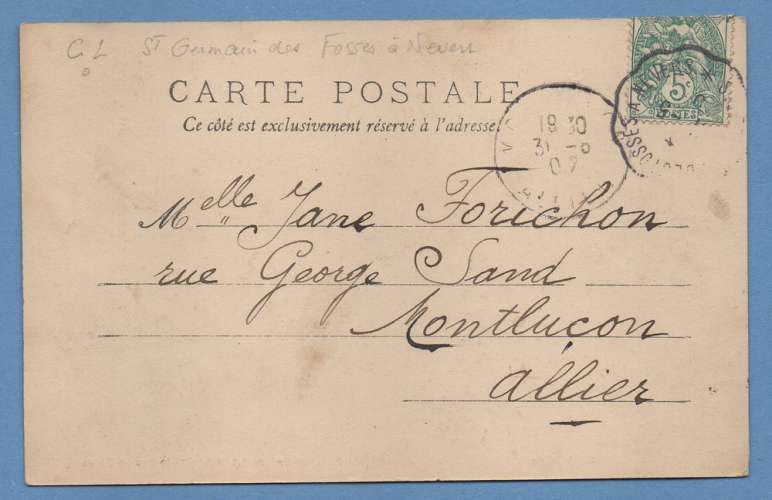 C L St Germain des Fosses à Nevers
CARTE POSTALE
Ce côté est exclusivement réservé à l'adresse.
5c
POSTES
FOSSES A NEVERS
18 30
31 -8
07
Melle Jane Forichon
rue George Sand
Montluçon
allier